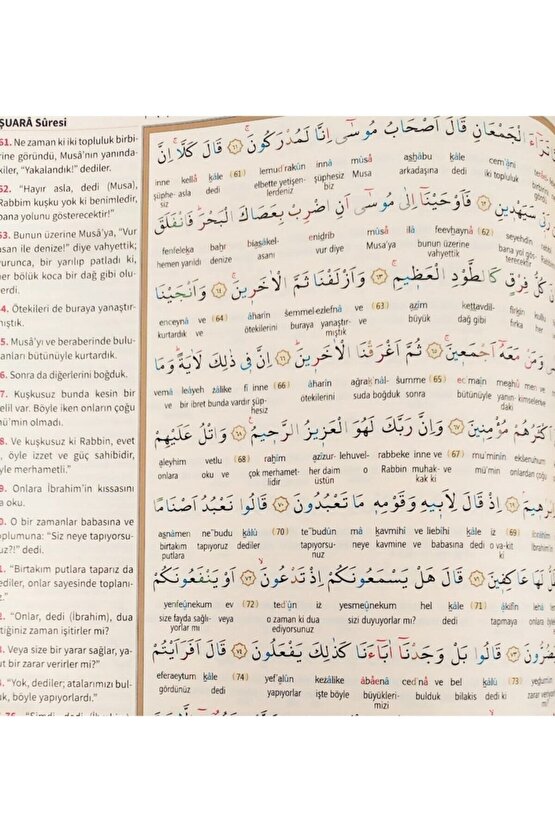 ŞUARÂ Sûresi
61. Ne zaman ki iki topluluk birbi-
rine göründü, Musâ'nın yanında-
kiler, "Yakalandık!" dediler.
62. "Hayır asla, dedi (Musa),
Rabbim kuşku yok ki benimledir,
bana yolunu gösterecektir!"
63. Bunun üzerine Musâ'ya, "Vur
asan ile denize!" diye vahyettik;
vurunca, bir yarılıp patladı ki,
her bölük koca bir dağ gibi olu-
verdi.
4. Ötekileri de buraya yanaştır-
mıştık.
5. Musâ'yı ve beraberinde bulu-
nanları bütünüyle kurtardık.
6. Sonra da diğerlerini boğduk.
7. Kuşkusuz bunda kesin bir
delil var. Böyle iken onların çoğu
mü'min olmadı.
8. Ve kuşkusuz ki Rabbin, evet
öyle izzet ve güç sahibidir,
öyle merhametli."
9. Onlara İbrahim'in kıssasını
da oku.
0. O bir zamanlar babasına ve
toplumuna: "Siz neye tapıyorsu-
nuz?!" dedi.
1. "Birtakım putlara taparız da
dediler, onlar sayesinde toplanı-
z."
2. "Onlar, dedi (İbrahim), dua
ettiğiniz zaman işitirler mi?
3. Veya size bir yarar sağlar, ya-
ut bir zarar verirler mi?"
4. "Yok, dediler; atalarımızı bul-
uk, böyle yapıyorlardı."
الْجَمْعَانِ قَالَ اَصْحَابُ مُوسٰٓى اِنَّا لَمُدْرَكُونَۚ ﴿٦١﴾ قَالَ كَلَّاۚ اِنَّ
inne kellâ kale (61) lemudrakûn innâ mûsâ ashâbu kâle cem'âni
şüphe- asla dedi elbette yetişen- şüphesiz Musa arkadaşına dedi iki topluluk
siz lerdeniz biz
رَبّ۪ي سَيَهْد۪ينِ ﴿٦٢﴾ فَاَوْحَيْنَٓا اِلٰى مُوسٰٓى اَنِ اضْرِبْ بِعَصَاكَ الْبَحْرَۜ فَانْفَلَقَ
fenfeleka bahr biasâkel- enidrib mûsâ ilâ feevhaynâ (62) seyehdîn
hemen yarıldı denize asanı vur diye Musa'ya bunun üzerine bana yol gös-
vahyettik terecektir
كُلُّ فِرْقٍ كَالطَّوْدِ الْعَظ۪يمِۚ ﴿٦٣﴾ وَاَزْلَفْنَا ثَمَّ الْاٰخَر۪ينَۚ ﴿٦٤﴾ وَاَنْجَيْنَا
enceynâ ve (64) âharîn semmel-ezlefnâ ve (63) azîm kettavdil- firkin kullu
kurtardık ve ötekilerini buraya yanaştır- ve büyük dağ gibi fırka her
mıştık
وَمَنْ مَعَهُٓ اَجْمَع۪ينَۚ ﴿٦٥﴾ ثُمَّ اَغْرَقْنَا الْاٰخَر۪ينَۜ ﴿٦٦﴾ اِنَّ ف۪ي ذٰلِكَ لَاٰيَةًۜ وَمَا
vemâ leâyeh zâlike fî inne (66) âharîn ağraknâl- summe (65) ecmaîn meahû men ve
ve bir ibret bunda vardır şüp- ötekilerini suda boğduk sonra bütünüyle yanın- kimselerde ve
hesiz daki
اَكْثَرُهُمْ مُؤْمِن۪ينَ ﴿٦٧﴾ وَاِنَّ رَبَّكَ لَهُوَ الْعَز۪يزُ الرَّح۪يمُ۟ ﴿٦٨﴾ وَاتْلُ عَلَيْهِمْ
aleyhim vetlu (68) rahîm azîzur- lehuvel- rabbeke inne ve (67) mu'minîn ekseruhum
onlara oku ve çok merhamet- her daim o Rabbin muhak- ve mü'min onlardan çoğu
lidir üstün kak ki
﴿٦٩﴾ اِذْ قَالَ لِاَب۪يهِ وَقَوْمِه۪ مَا تَعْبُدُونَ ﴿٧٠﴾ قَالُوا نَعْبُدُ اَصْنَامًا
asnâmen ne'budu kâlû (70) te'budûn mâ kavmihî ve liebîhi kâle iz (69) ibrâhîm
birtakım tapıyoruz dediler tapıyorsu- neye kavmine ve babasına dedi o vakit İbrahim
putlara nuz
لَهَا عَاكِف۪ينَ ﴿٧١﴾ قَالَ هَلْ يَسْمَعُونَكُمْ اِذْ تَدْعُونَۙ ﴿٧٢﴾ اَوْ يَنْفَعُونَكُمْ
yenfeûnekum ev (72) ted'ûn iz yesmeûnekum hel kâle (71) âkifîn lehâ
size fayda sağlı- veya o zaman ki dua sizi duyuyorlar mı? dedi tapmaya onlara
yorlar mı ediyorsunuz
﴿٧٣﴾ قَالُوا بَلْ وَجَدْنَٓا اٰبَٓاءَنَا كَذٰلِكَ يَفْعَلُونَ ﴿٧٤﴾ قَالَ اَفَرَاَيْتُمْ
eferaeytum kâle (74) yef'alûn kezâlike âbâenâ cednâ ve bel kâlû (73)
gördünüz dedi yapıyorlar işte böyle büyükleri- bulduk bilakis dedi ki
mizi